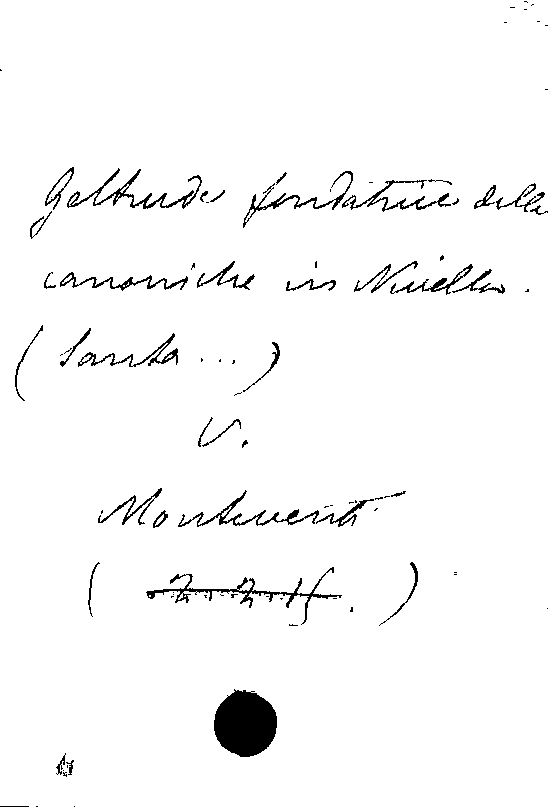 Geltrude fondatrice delle
canoniche in Nivella.
(Santa...)
V.
Monteverdi
(2.2.15.)